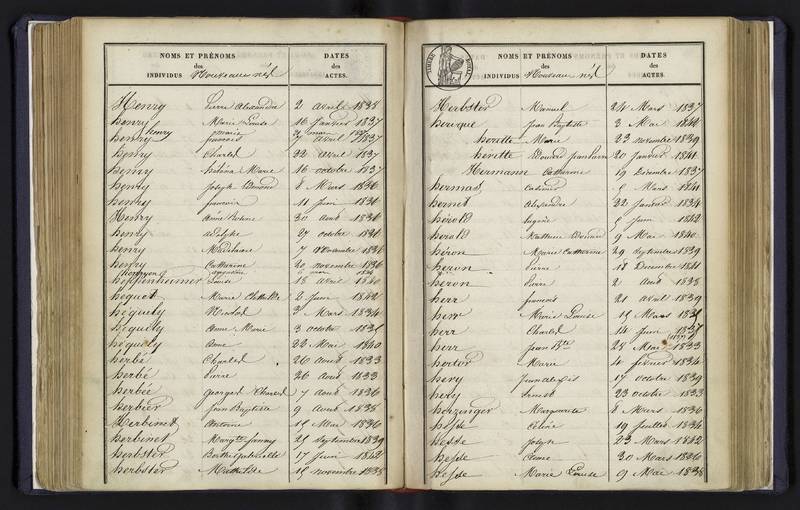 NOMS ET PRÉNOMS DATES
des des
INDIVIDUS Nouveaux nés ACTES.
Henry Pierre Alexandre 2 avril 1838
henry Marie Louise 16 Janvier 1837
henry
henry francois 7 avril 1837
henry Charles 22 avril 1837
henry Marie 16 octobre 1837
henry Joseph Edmond 8 Mars 1836
henry francois 11 Juin 1836
Henry Anne 30 aout 1836
henry adolphe 27 octobre 1836
henry Madelaine 7 Novembre 1836
henry Catherine 20 novembre 1836
hoppenheimer Louise 18 avril 1840
hequet Marie Clothilde 2 Juin 1842
héquely Nicolas 3 Mars 1834
héquely Anne Marie 3 octobre 1835
héquely Anne 22 Mai 1840
herbé Charles 26 aout 1833
herbé Pierre 26 aout 1833
herbée georges Charles 7 aout 1836
herbier Jean Baptiste 9 aout 1838
Herbinet Antoine 15 Mai 1836
herbinet Margte fanny 25 Septembre 1839
herbster 17 Juin 1842
herbster Mathilde 15 novembre 1838
NOMS ET PRÉNOMS DATES
des des
INDIVIDUS Nouveaux nés ACTES.
TIMBRE ROYAL
Herbster Manuel 24 Mars 1837
herique Jean Baptiste 3 Mai 1842
herette Marie 23 novembre 1839
herette Edouard Jean Pierre 20 Janvier 1841
Hermann Catherine 19 Decembre 1837
hermas Casimir 5 Mars 1841
hernet Alexandre 22 Janvier 1834
hérold Eugène 5 Juin 1842
hérold Matthieu Edouard 9 Mai 1840
héron Marie Catherine 29 Septembre 1839
heron Pierre 18 Decembre 1841
heron Pierre 2 aout 1838
herr francois 21 avril 1839
herr Marie Louise 15 Mars 1835
herr Charles 14 Juin 1837
herr Jean Bte 25 Mai 1833
hertor Marie 4 fevrier 1834
hery Jean alexis 17 octobre 1839
hery Ernest 23 octobre 1833
herzinger Marguerite 8 Mars 1836
hesse Céline 19 Juillet 1836
hesse Joseph 23 Mars 1842
hesse Anne 30 Mars 1836
hesse Marie Louise 9 Mai 1838